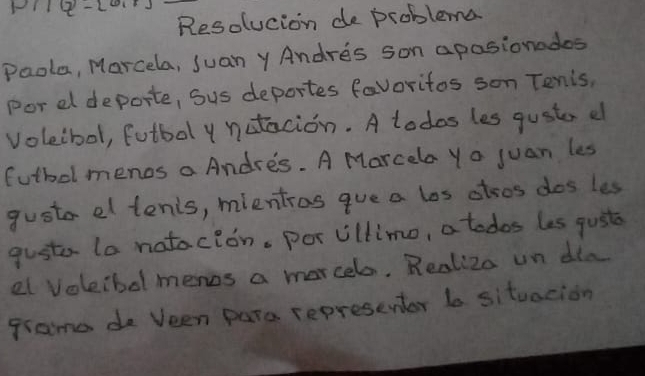 Resolución de problema
Paola, Marcela, Juan y Andrés son apasionados
por el deporte, sus deportes favoritos son Tenis,
Voleibol, futbol y natación. A todos les gusta el
futbol menos a Andrés. A Marcela y a Juan les
gusta el tenis, mientras que a los otros dos les
gusta la natación. Por último, a todos les gusta
el voleibol menos a marcela. Realiza un dia
grama de Veen para representar la situación